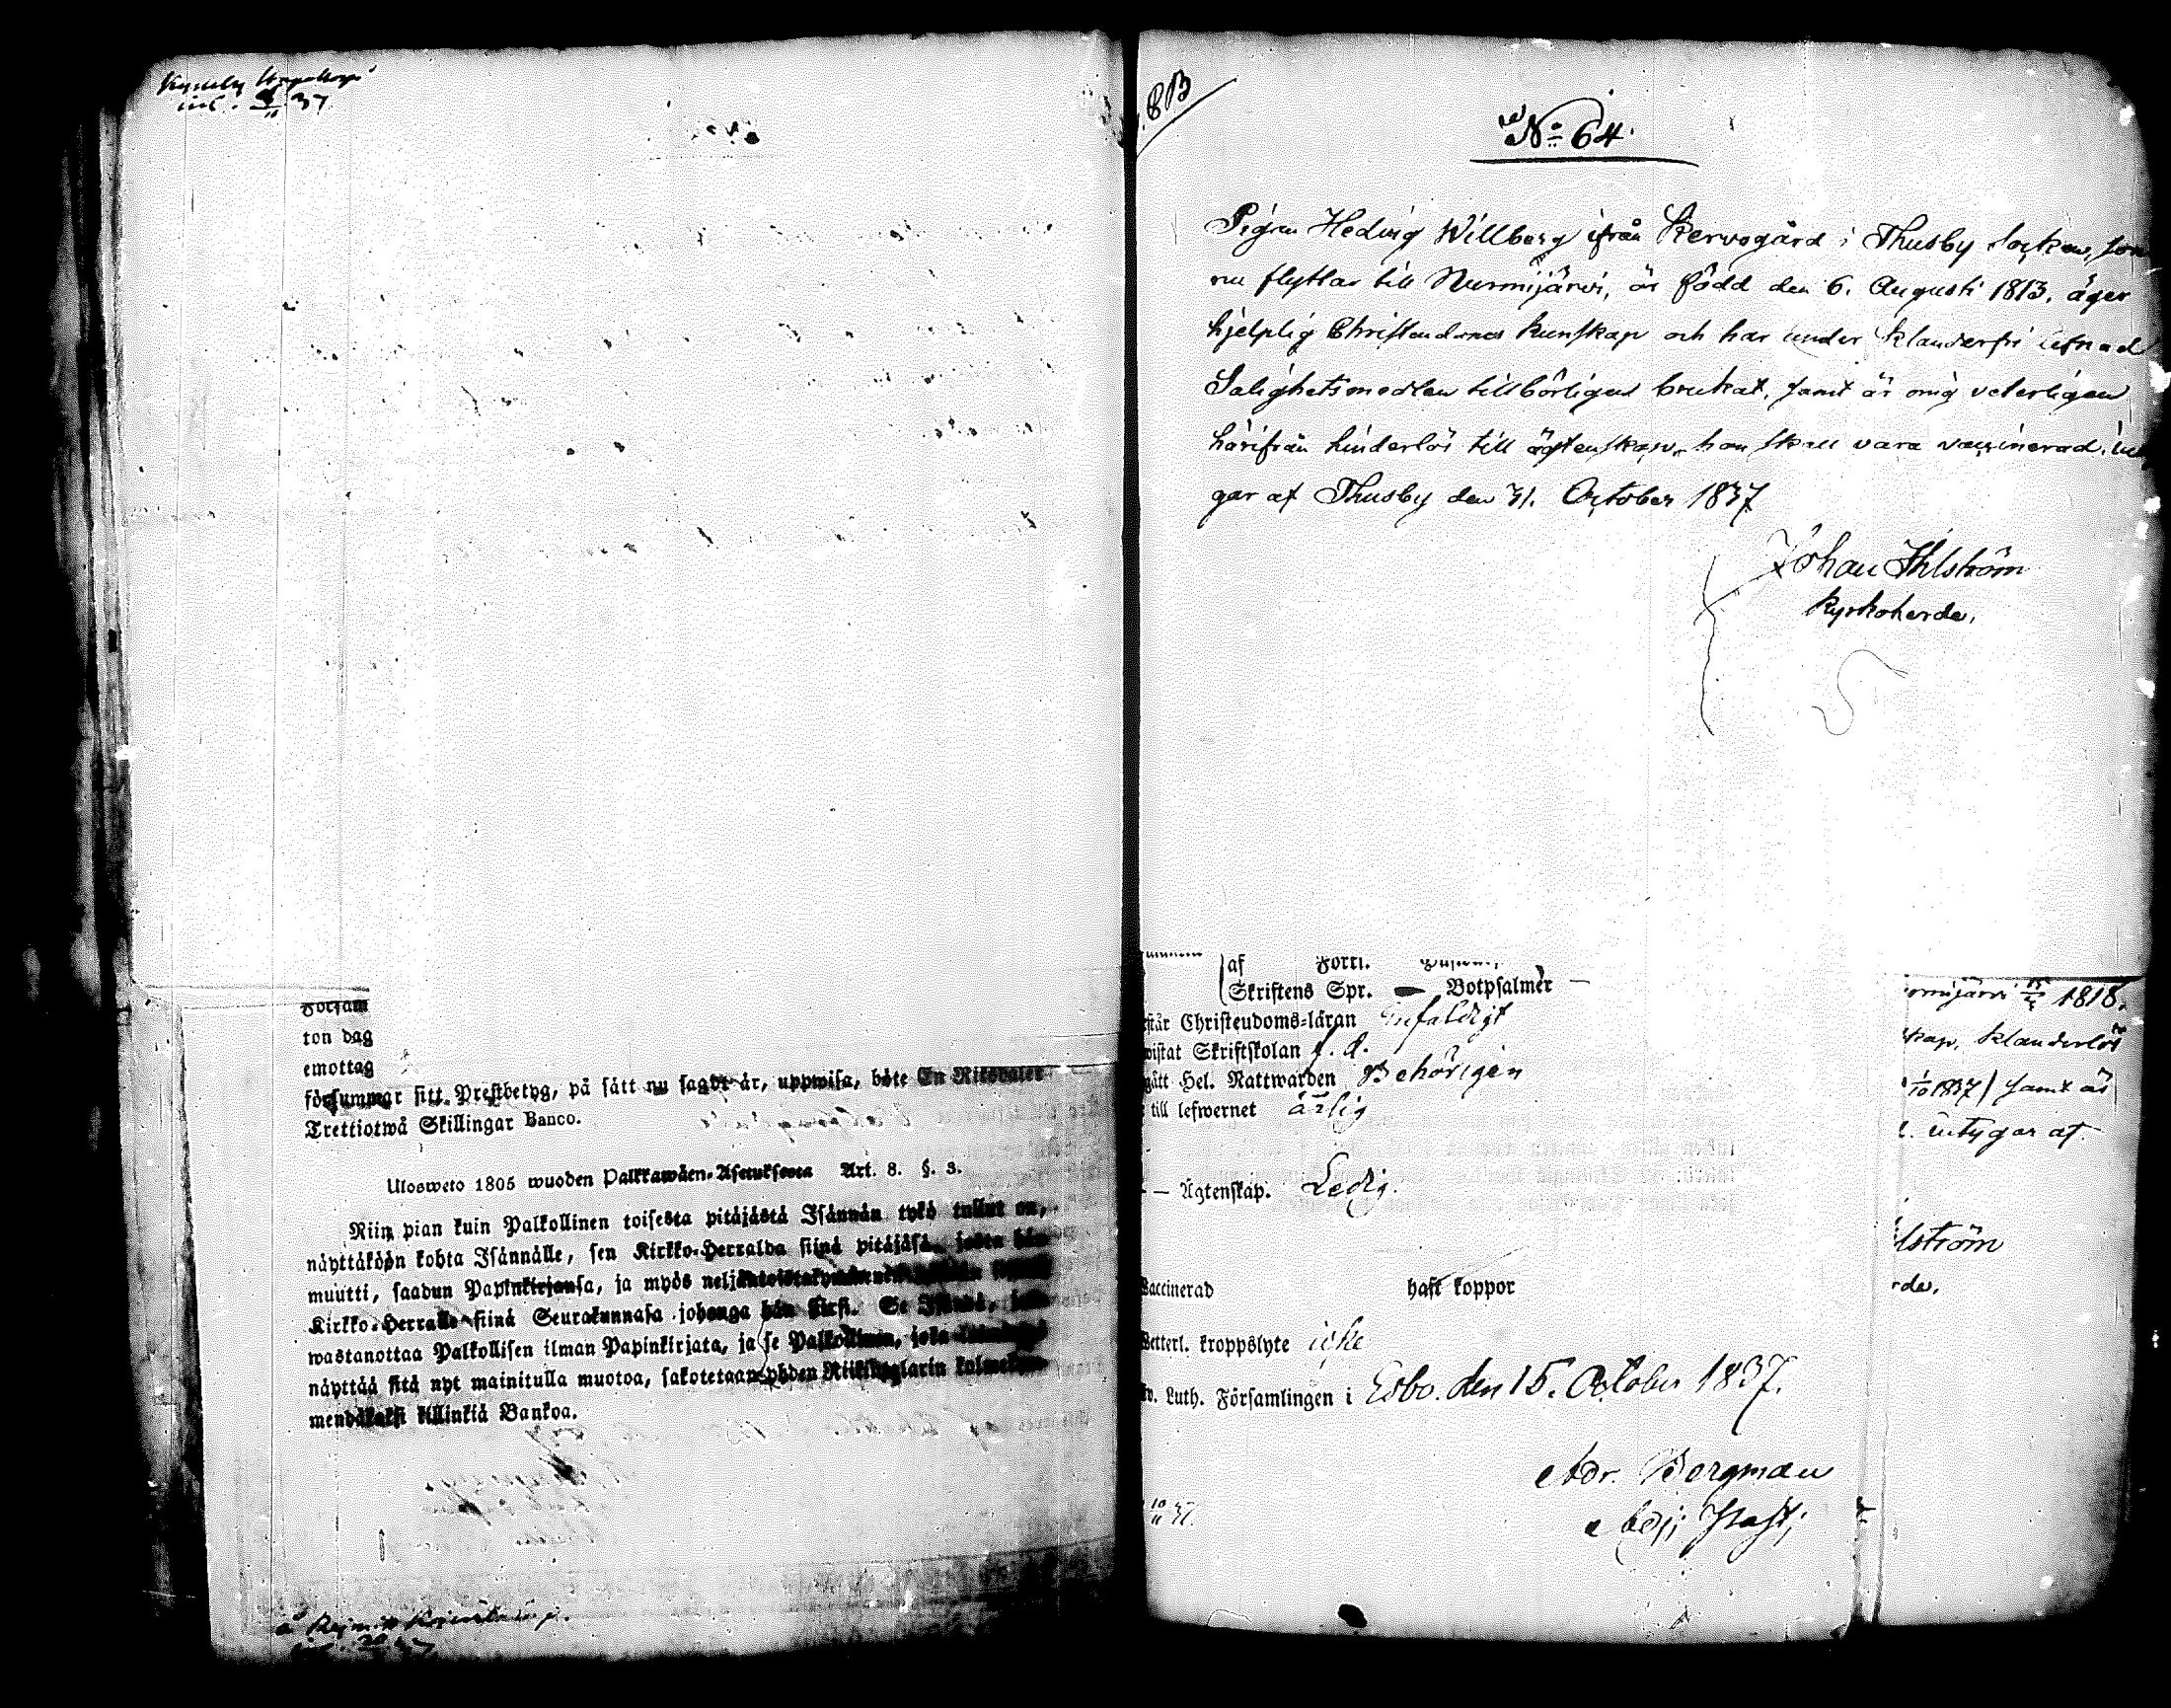 inl. 37
Försam
ton dag
emottag
försummar sitt Prestbetyg, på sätt nu sagdt är, uppwisa, böte En Riksdaler
Trettiotwå Skillingar Banco.
Ulosweto 1805 wuoden Palkkawäen-Asetuksesta Art. 8. §. 3.
Niin pian kuin Palkollinen toisesta pitäjästä Isännän tykö tullut on,
näyttäköön kohta Isännälle, sen Kirkko-Herralda siinä pitäjäsä, josta hän
muutti, saadun Papinkirjansa, ja myös neljäntoistakymmenen
Kirkko-Herralle siinä Seurakunnasa johonga hän siirsi. Se Isändä, joka
wastanottaa Palkollisen ilman Papinkirjata, ja se Palkollinen, joka
näyttää sitä nyt mainitulla muotoa, sakotetaan yhden Riikintaalarin kolmekym-
mendäkaksi killinkiä Bankoa.
No 64.
Pigan Hedvig Willberg ifrån Kervogård i Thusby Socken, som
nu flyttar till Nurmijärvi, är född den 6. Augusti 1813, äger
hjelplig Christendoms kunskap och har under klanderfri lefnad
Salighetsmedlen tillbörligen brukat, samt är mig veterligen
härifrån hinderlös till ägtenskap, hon skall vara vaccinerad, in
gar af Thusby den 31. October 1837
Johan Ihlström
Kyrkoherde.
af Förkl.
Skriftens Spr. — Botpsalmer —
står Christendoms-läran enfaldigt
wistat Skriftskolan f. d.
gått Hel. Nattwarden Behörigen
till lefwernet ärlig
— Ägtenskap. Ledig.
Vaccinerad haft koppor
Wetterl. kroppslyte icke
Ev. Luth. Församlingen i Esbo. den 15. October 1837.
Adr. Bergman
Adj.
10/11 37.
omijärvi 1818.
skap, klanderlös
1/10 1837) samt är
intygar af
lström
rde.